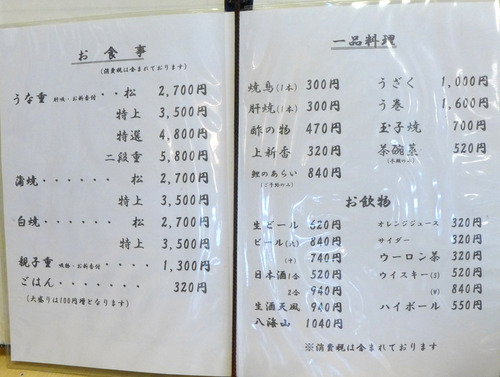 お食事
(消費税は含まれております)
うな重 肝吸・お新香付・・松 2,700円
特上 3,500円
特選 4,800円
二段重 5,800円
蒲焼・・・・・・松 2,700円
特上 3,500円
白焼・・・・・・松 2,700円
特上 3,500円
親子重 吸物・お新香付・・・・ 1,300円
ごはん・・・・・・・ 320円
(大盛りは100円増となります)
一品料理
焼鳥(1本) 300円
肝焼(1本) 300円
酢の物 470円
上新香 320円
鯉のあらい 840円
(ご予約のみ)
うざく 1,000円
う巻 1,600円
玉子焼 700円
茶碗蒸 520円
(冬期のみ)
お飲物
生ビール 620円
ビール(大) 840円
(中) 740円
日本酒1合 520円
2合 940円
生酒天風 940円
八海山 1040円
オレンジジュース 320円
サイダー 320円
ウーロン茶 320円
ウイスキー(S) 520円
(W) 840円
ハイボール 550円
※消費税は含まれております